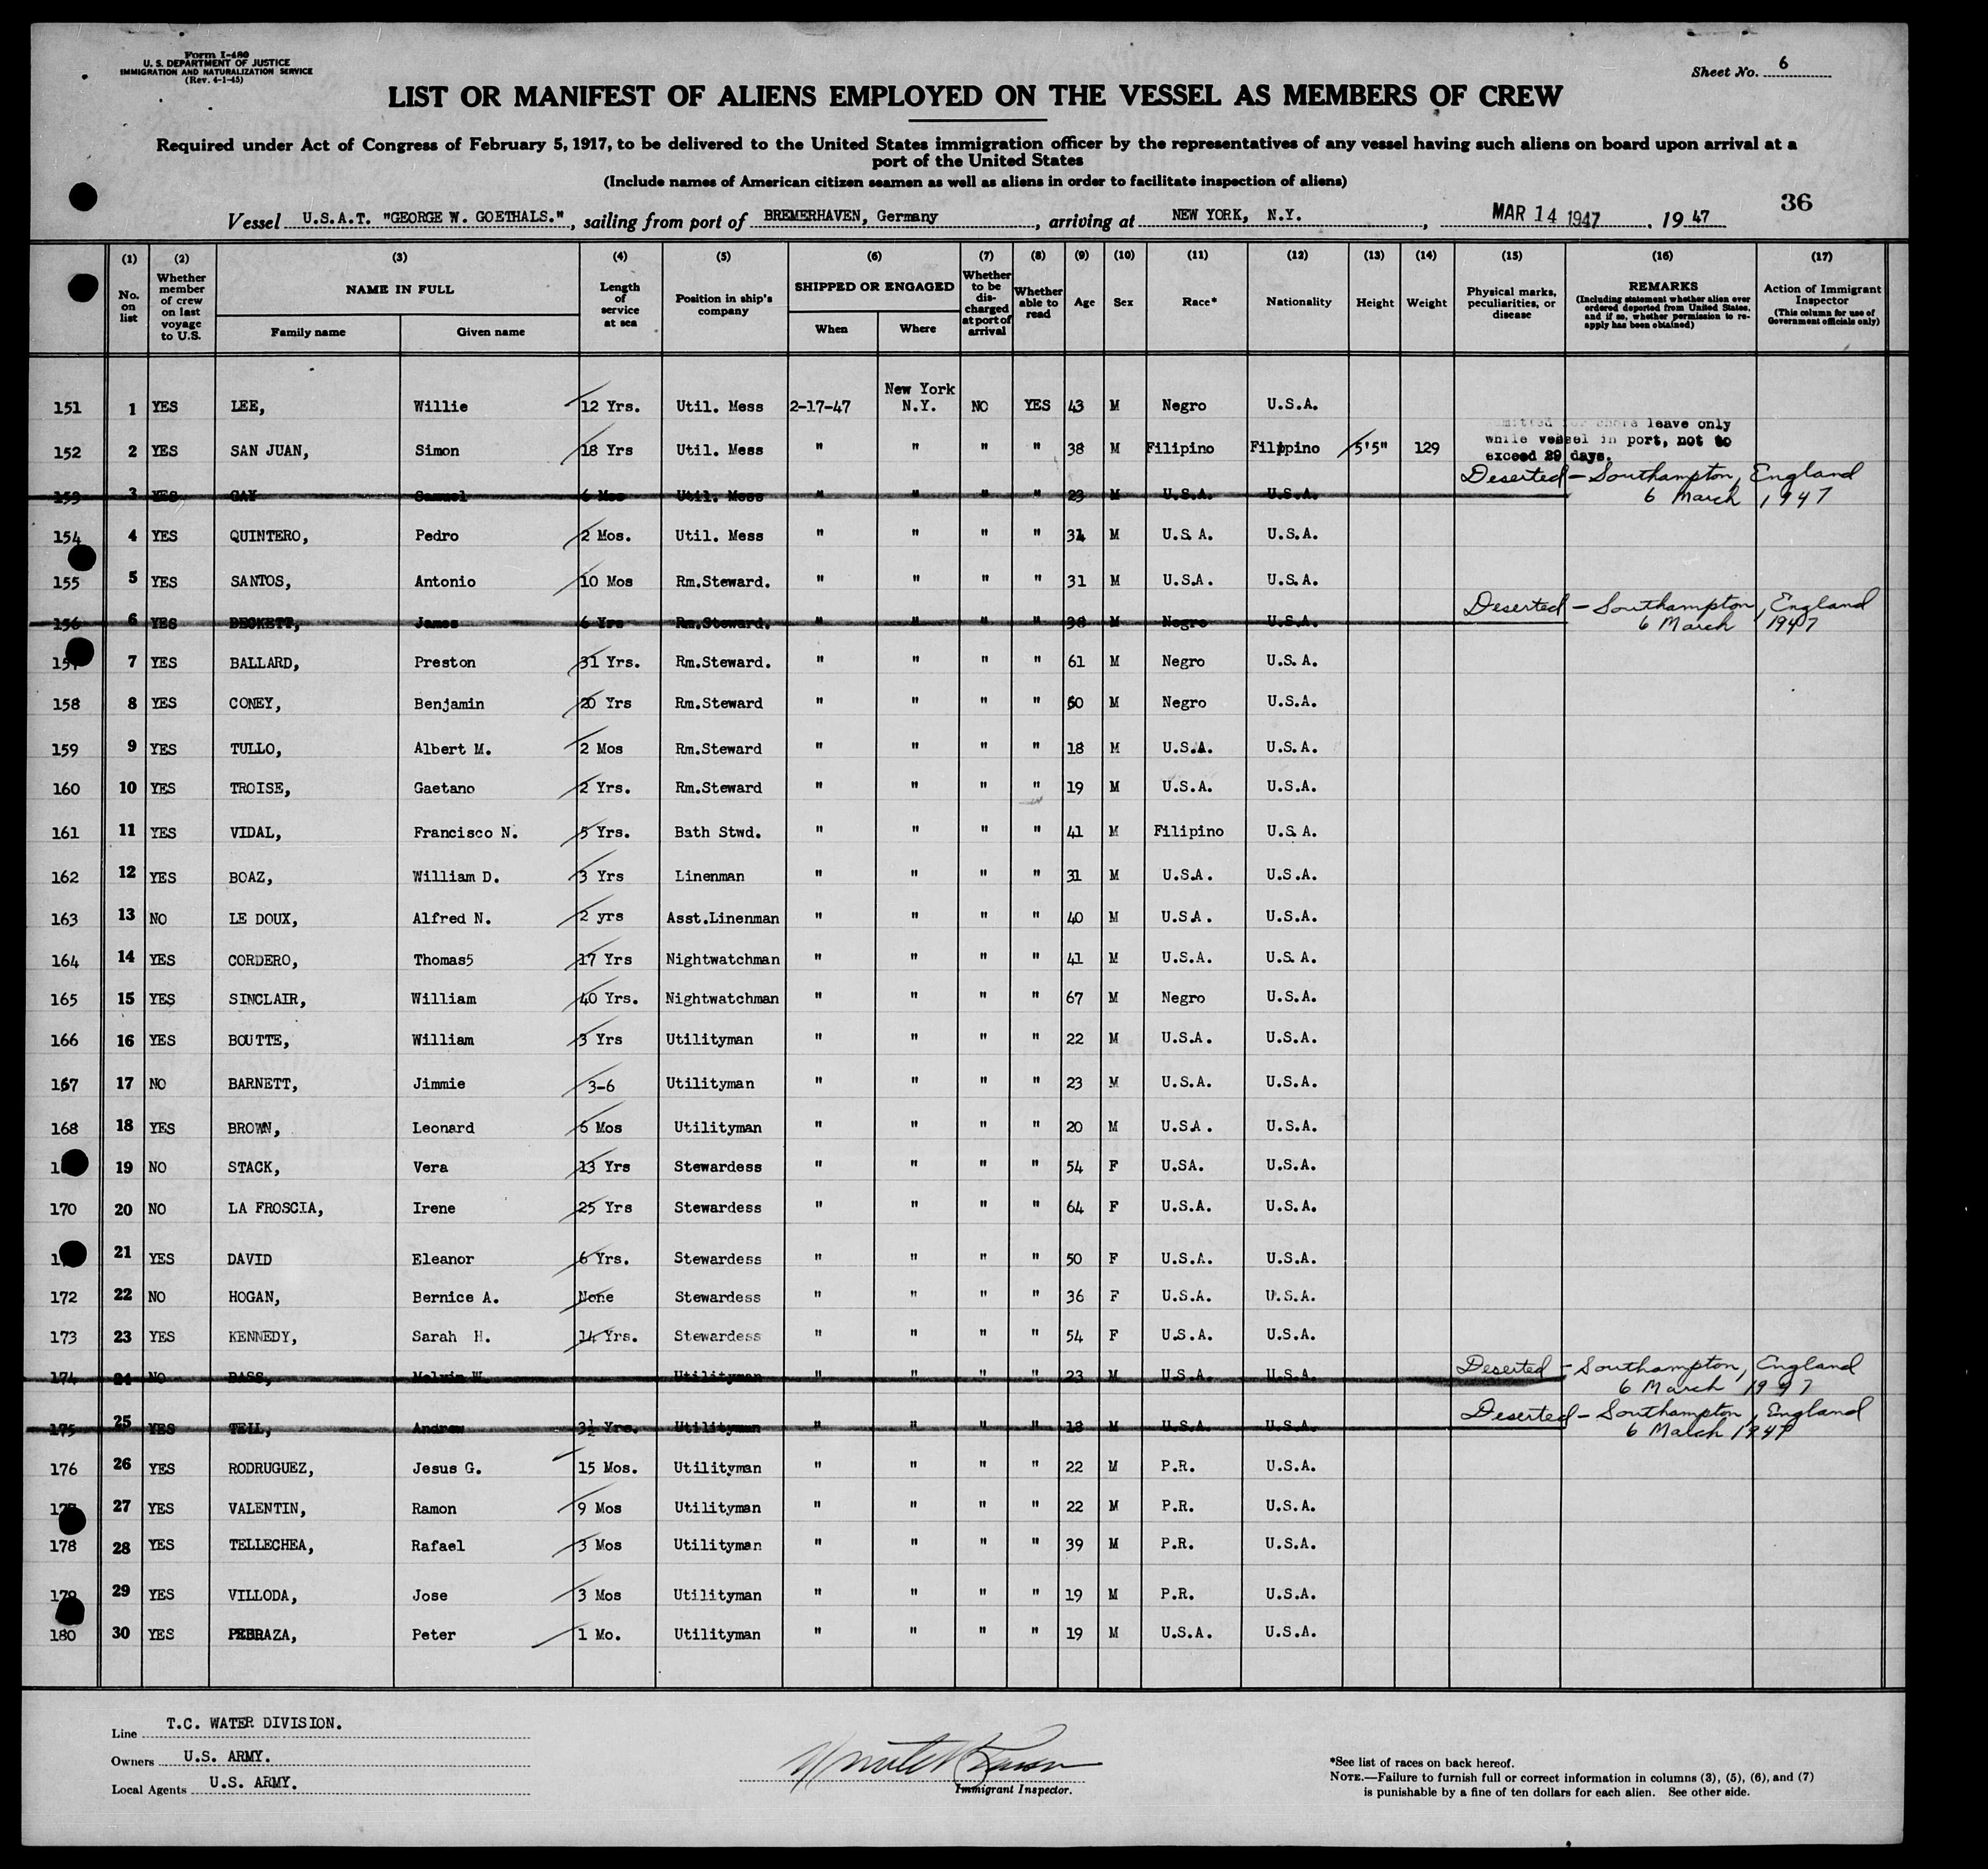 Form I-480
U. S. DEPARTMENT OF JUSTICE
IMMIGRATION AND NATURALIZATION SERVICE
(Rev. 4-1-45)
Sheet No. 6
LIST OR MANIFEST OF ALIENS EMPLOYED ON THE VESSEL AS MEMBERS OF CREW
Required under Act of Congress of February 5, 1917, to be delivered to the United States immigration officer by the representatives of any vessel having such aliens on board upon arrival at a
port of the United States
(Include names of American citizen seamen as well as aliens in order to facilitate inspection of aliens)
36
Vessel U.S.A.T. "GEORGE W. GOETHALS.", sailing from port of BREMERHAVEN, Germany, arriving at NEW YORK, N.Y., MAR 14 1947, 1947
(1) No. on list (2) Whether member of crew on last voyage to U.S. (3) NAME IN FULL Family name Given name (4) Length of service at sea (5) Position in ship's company (6) SHIPPED OR ENGAGED When Where (7) Whether to be discharged at port of arrival (8) Whether able to read (9) Age (10) Sex (11) Race* (12) Nationality (13) Height (14) Weight (15) Physical marks, peculiarities, or disease (16) REMARKS (Including statement whether alien ever ordered deported from United States, and if so, whether permission to re-apply has been obtained) (17) Action of Immigrant Inspector (This column for use of Government officials only)
151 1 YES LEE, Willie 12 Yrs. Util. Mess 2-17-47 New York N.Y. NO YES 43 M Negro U.S.A.
152 2 YES SAN JUAN, Simon 18 Yrs Util. Mess " " " " 38 M Filipino Filipino 5'5" 129 shore leave only while vessel in port, not to exceed 29 days.
153 3 YES GAY Samuel 6 Mos Util. Mess " " " " 23 M U.S.A. U.S.A. Deserted - Southampton, England 6 March 1947
154 4 YES QUINTERO, Pedro 2 Mos. Util. Mess " " " " 31 M U.S.A. U.S.A.
155 5 YES SANTOS, Antonio 10 Mos Rm.Steward. " " " " 31 M U.S.A. U.S.A.
156 6 YES BECKETT, James 6 Yrs Rm.Steward. " " " " 38 M Negro U.S.A. Deserted - Southampton, England 6 March 1947
157 7 YES BALLARD, Preston 31 Yrs. Rm.Steward. " " " " 61 M Negro U.S.A.
158 8 YES CONEY, Benjamin 20 Yrs Rm.Steward " " " " 50 M Negro U.S.A.
159 9 YES TULLO, Albert M. 2 Mos Rm.Steward " " " " 18 M U.S.A. U.S.A.
160 10 YES TROISE, Gaetano 2 Yrs. Rm.Steward " " " " 19 M U.S.A. U.S.A.
161 11 YES VIDAL, Francisco N. 5 Yrs. Bath Stwd. " " " " 41 M Filipino U.S.A.
162 12 YES BOAZ, William D. 3 Yrs Linenman " " " " 31 M U.S.A. U.S.A.
163 13 NO LE DOUX, Alfred N. 2 yrs Asst.Linenman " " " " 40 M U.S.A. U.S.A.
164 14 YES CORDERO, Thomas5 17 Yrs Nightwatchman " " " " 41 M U.S.A. U.S.A.
165 15 YES SINCLAIR, William 40 Yrs. Nightwatchman " " " " 67 M Negro U.S.A.
166 16 YES BOUTTE, William 3 Yrs Utilityman " " " " 22 M U.S.A. U.S.A.
167 17 NO BARNETT, Jimmie 3-6 Utilityman " " " " 23 M U.S.A. U.S.A.
168 18 YES BROWN, Leonard 6 Mos Utilityman " " " " 20 M U.S.A. U.S.A.
19 NO STACK, Vera 13 Yrs Stewardess " " " " 54 F U.SA. U.S.A.
170 20 NO LA FROSCIA, Irene 25 Yrs Stewardess " " " " 64 F U.S.A. U.S.A.
21 YES DAVID Eleanor 6 Yrs. Stewardess " " " " 50 F U.S.A. U.S.A.
172 22 NO HOGAN, Bernice A. None Stewardess " " " " 36 F U.S.A. U.S.A.
173 23 YES KENNEDY, Sarah H. 14 Yrs. Stewardess " " " " 54 F U.S.A. U.S.A.
174 24 NO BASS, Melvin W. Utilityman " " " " 23 M U.S.A. U.S.A. Deserted - Southampton, England 6 March 1947
175 25 YES TEIL, Andrew 3½ Yrs. Utilityman " " " " 18 M U.S.A. U.S.A. Deserted - Southampton, England 6 March 1947
176 26 YES RODRUGUEZ, Jesus G. 15 Mos. Utilityman " " " " 22 M P.R. U.S.A.
177 27 YES VALENTIN, Ramon 9 Mos Utilityman " " " " 22 M P.R. U.S.A.
178 28 YES TELLECHEA, Rafael 3 Mos Utilityman " " " " 39 M P.R. U.S.A.
179 29 YES VILLODA, Jose 3 Mos Utilityman " " " " 19 M P.R. U.S.A.
180 30 YES PEDRAZA, Peter 1 Mo. Utilityman " " " " 19 M U.S.A. U.S.A.
Line T.C. WATER DIVISION.
Owners U.S. ARMY.
Local Agents U.S. ARMY.
Immigrant Inspector.
*See list of races on back hereof.
NOTE.—Failure to furnish full or correct information in columns (3), (5), (6), and (7)
is punishable by a fine of ten dollars for each alien. See other side.